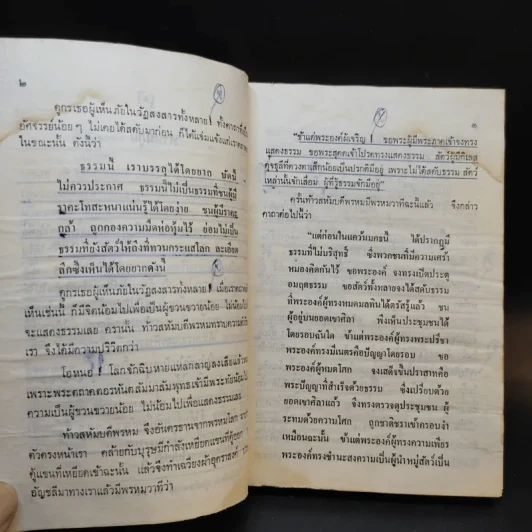 ๒
ดูกรเธอผู้เห็นภัยในวัฏสงสารทั้งหลาย ! ทั้งคาถาที่เป็น
อัศจรรย์น้อยๆ ไม่เคยได้สดับมาก่อน ก็ได้แจ่มแจ้งแก่เรา
ในขณะนั้น ดังนี้ว่า
ธรรมนี้ เราบรรลุได้โดยยาก บัดนี้
ไม่ควรประกาศ ธรรมนี้ไม่เป็นธรรมที่ชนผู้มี
ราคะโทสะหนาแน่นรู้ได้โดยง่าย ชนผู้มีราคะ
กล้า ถูกกองความมืดห่อหุ้มไว้ ย่อมไม่เป็น
ธรรมที่ยังสัตว์ให้ถึงที่ทวนกระแสโลก ละเอียด
ลึกซึ้งเห็นได้โดยยากดังนี้
ดูกรเธอผู้เห็นภัยในวัฏสงสารทั้งหลาย ! เมื่อเรา
เห็นเช่นนี้ ก็มีจิตน้อมไปเพื่อเป็นผู้ขวนขวายน้อย ไม่น้อมไป
จะแสดงธรรมเลย ครานั้น ท้าวสหัมบดีพรหมทราบความดำริ
เรา จึงได้มีความปริวิตกว่า
โอหนอ ! โลกจักฉิบหายแหลกลาญลงเสียแล้ว
เพราะพระตถาคตอรหันตสัมมาสัมพุทธเจ้ามีพระทัยน้อมไป
ความเป็นผู้ขวนขวายน้อย ไม่น้อมไปเพื่อแสดงธรรมเลย
ท้าวสหัมบดีพรหม จึงอันตรธานจากพรหมโลก
ตัวตรงหน้าเรา คล้ายกับบุรุษมีกำลังเหยียดแขนที่คู้ออก
คู้แขนที่เหยียดเข้าฉะนั้น แล้วจึงทำเฉวียงผ้าอุตราสงค์
อัญชลีมาทางเราแล้วมีพรหมวาทีว่า
๓
"ข้าแต่พระองค์ผู้เจริญ ขอพระผู้มีพระภาคเจ้าจงทรง
แสดงธรรม ขอพระสุคตเจ้าโปรดทรงแสดงธรรม สัตว์ผู้มีกิเลส
ดุจธุลีที่ดวงตาเล็กน้อยเป็นปรกติมีอยู่ เพราะไม่ได้สดับธรรม สัตว์
เหล่านั้นจักเสื่อม ผู้ที่รู้ธรรมจักมีอยู่"
ครั้นท้าวสหัมบดีพรหมมีพรหมวาทีฉะนั้นแล้ว จึงกล่าว
คาถาต่อไปนี้ว่า
"แต่ก่อนในแคว้นมคธนี้ ได้ปรากฏมี
ธรรมที่ไม่บริสุทธิ์ ซึ่งพวกชนที่มีความเศร้า
หมองคิดกันไว้ ขอพระองค์ จงทรงเปิดประตู
อมฤตธรรม ขอสัตว์ทั้งหลายจงได้สดับธรรม
ที่พระองค์ผู้ทรงหมดมลทินได้ตรัสรู้แล้ว ชน
ผู้อยู่บนยอดเขาศิลา พึงเห็นประชุมชนได้
โดยรอบฉันใด ข้าแต่พระองค์ผู้ทรงพระปรีชา
พระองค์ทรงมีเนตรคือปัญญาโดยรอบ ขอ
พระองค์ผู้หมดโศก จงเสด็จขึ้นปราสาทคือ
พระปัญญาที่สำเร็จด้วยธรรม ซึ่งเปรียบด้วย
ยอดเขาศิลาแล้ว จึงทรงตรวจดูประชุมชน ผู้
ระทมด้วยความโศก ถูกชาติชราเข้าครอบงำ
เหมือนฉะนั้น ข้าแต่พระองค์ผู้ทรงความเพียร
พระองค์ทรงชำนะสงครามเป็นผู้นำหมู่สัตว์เป็น